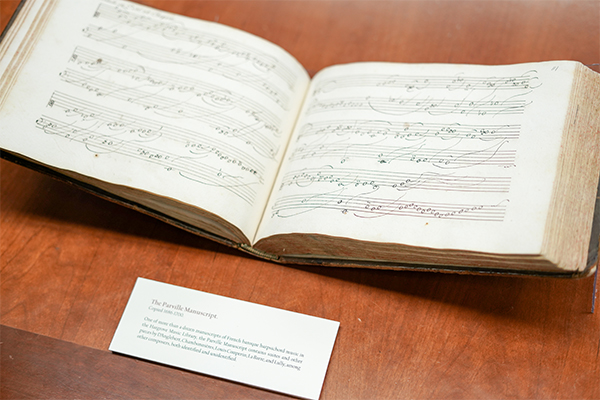 The Parville Manuscript.
Copied 1686-1710.
One of more than a dozen manuscripts of French baroque harpsichord music in
the Hargrove Music Library, the Parville Manuscript contains suites and other
pieces by D'Anglebert, Chambonnières, Louis Couperin, LeBègue, and Lully, among
other composers, both identified and unidentified.